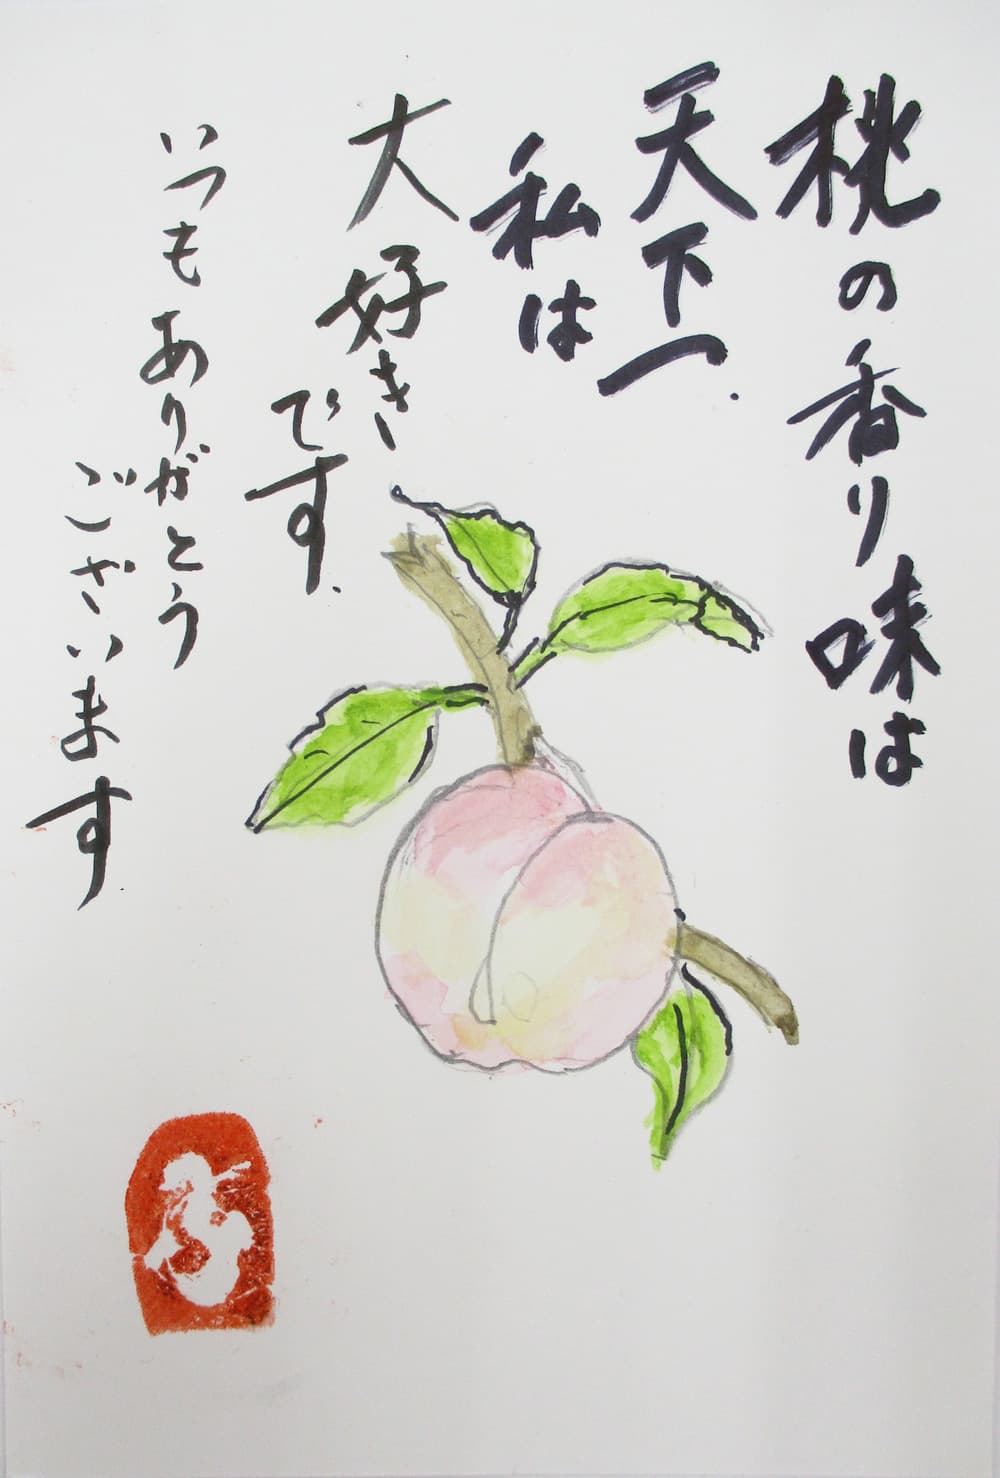 桃の香り味は
天下一.
私は
大好き
です.
いつもありがとう
ございます